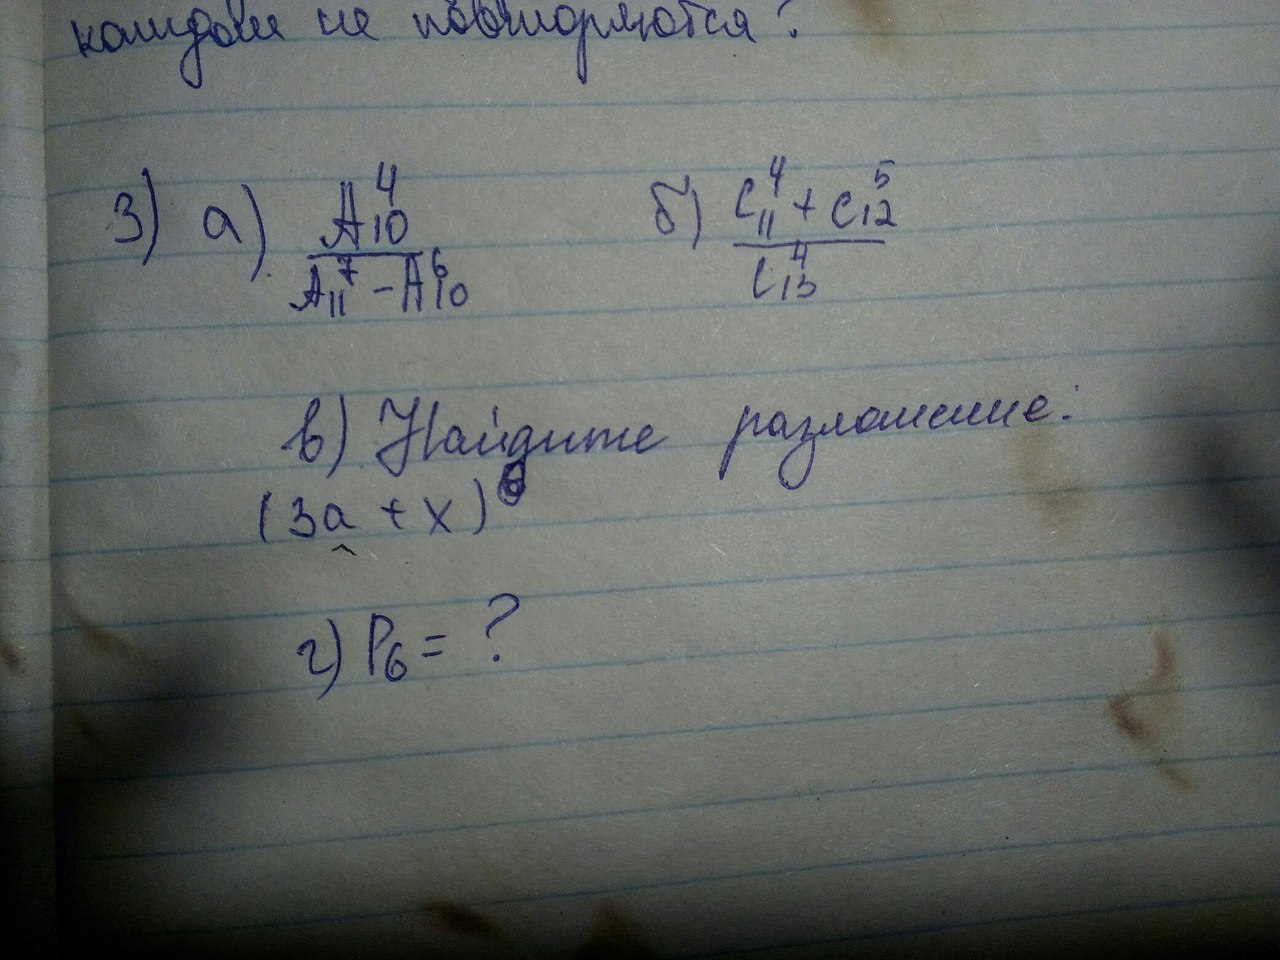 каждом не повторяются?
3) а) A₁₀⁴ / (A₁₁⁷ – A₁₀⁶) б) (C₁₁⁴ + C₁₂⁵) / C₁₃⁴
в) Найдите разложение:
(3a + x)⁶
г) P₆ = ?